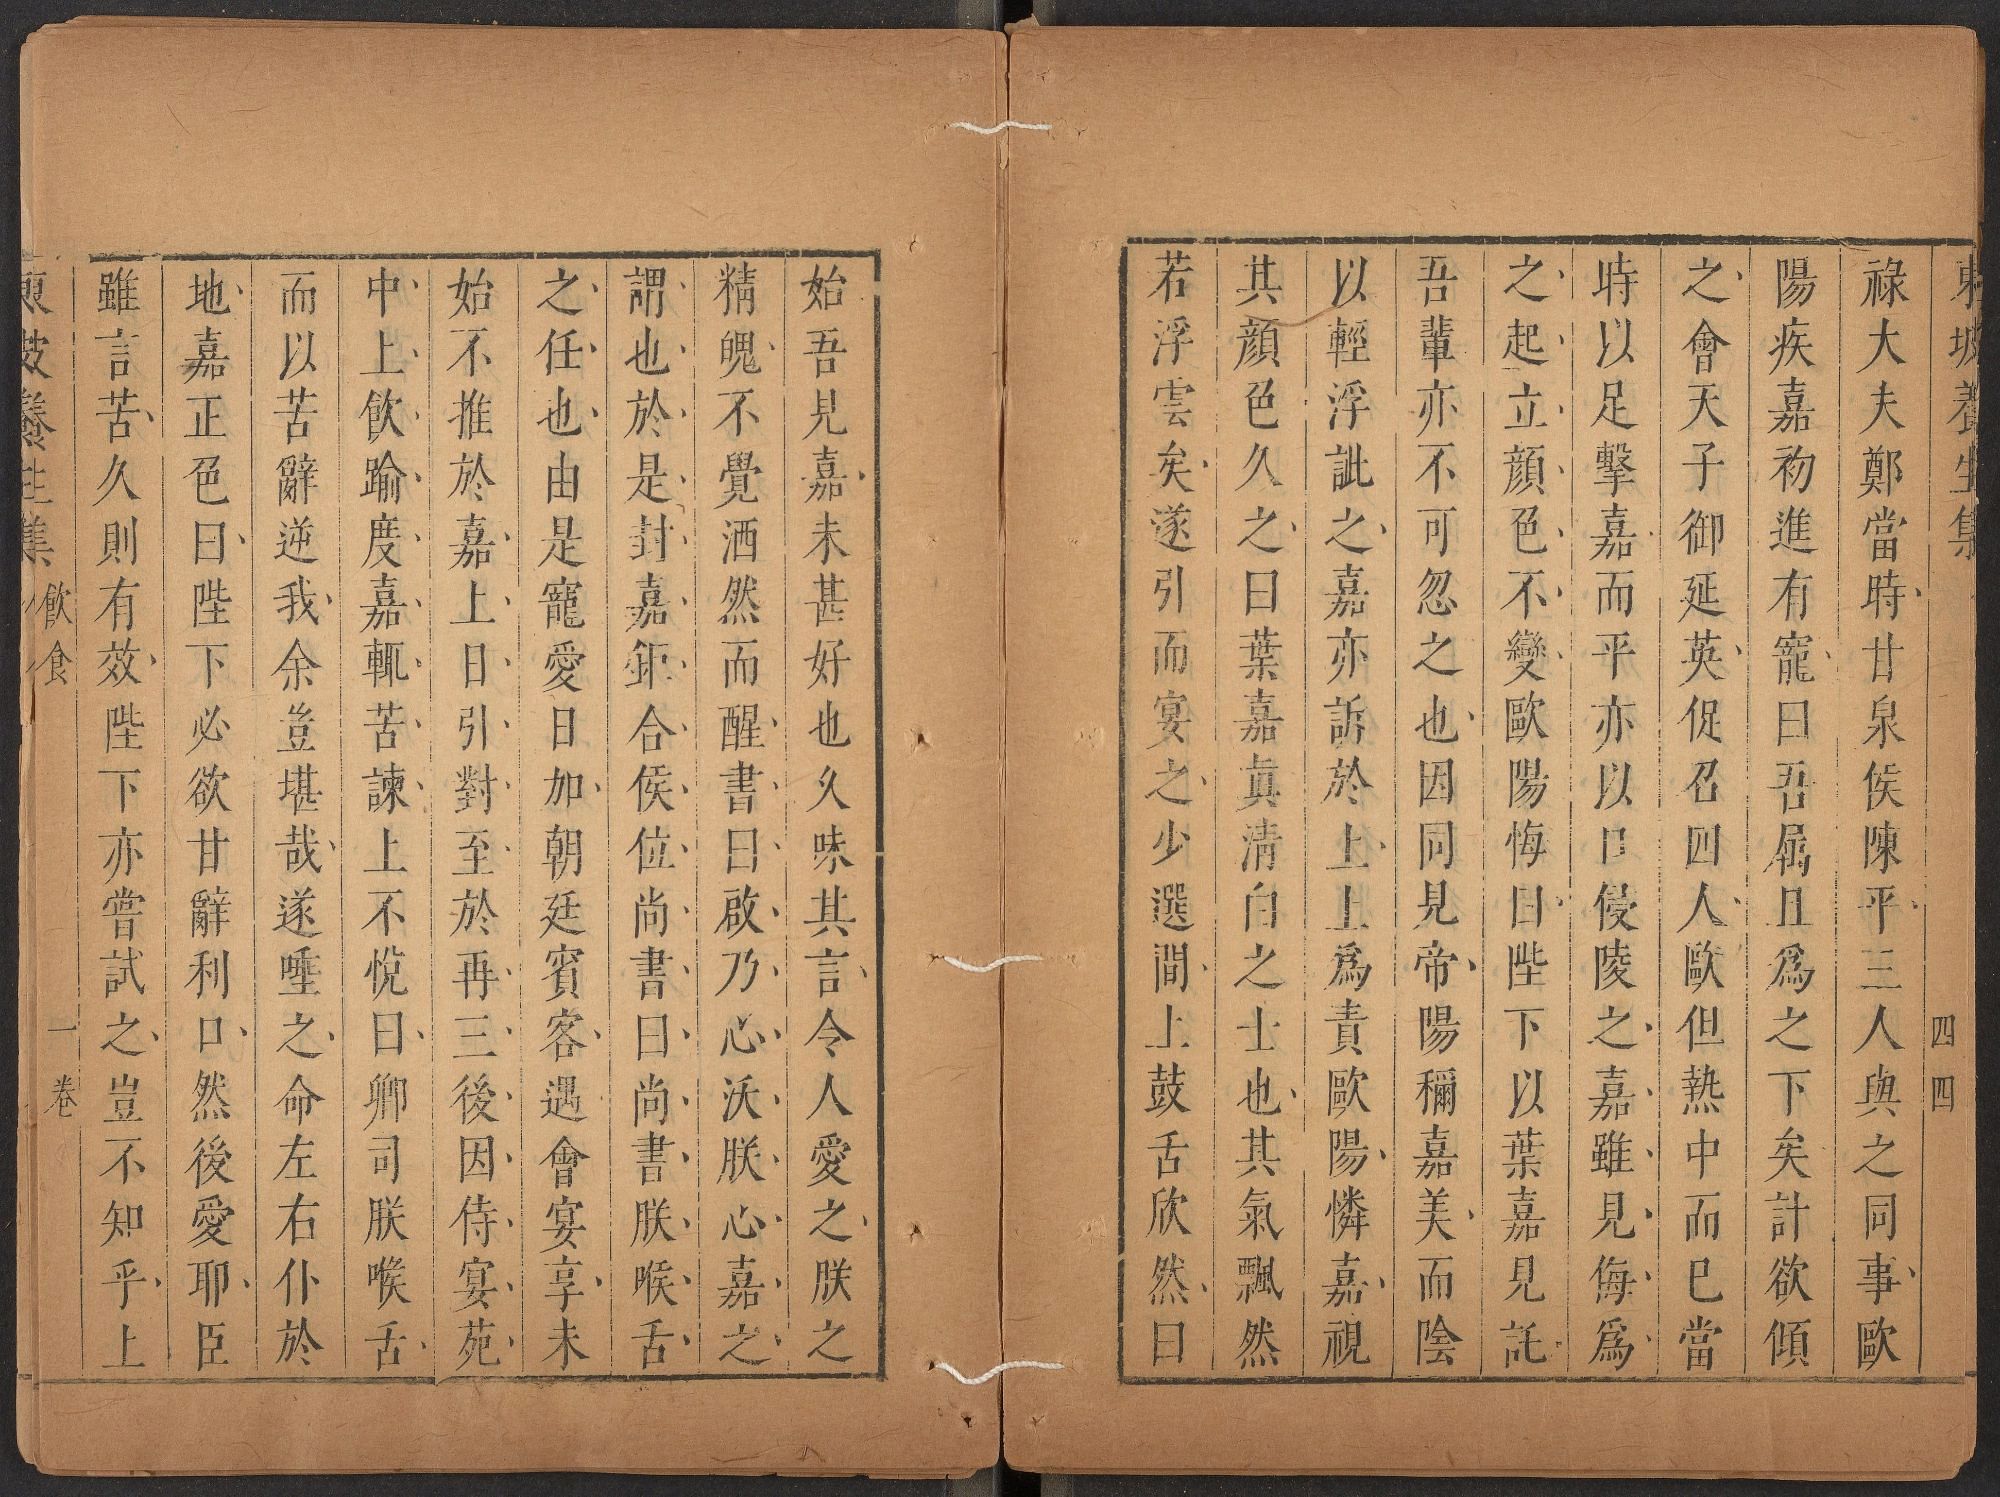 東坡養生集
四四
祿大夫鄭當時甘泉侯陳平三人與之同事歐
陽疾嘉初進有寵曰吾屬且爲之下矣計欲傾
之會天子御延英促召四人歐但熱中而已當
時以足擊嘉而平亦以口侵陵之嘉雖見侮爲
之起立顏色不變歐陽悔曰陛下以葉嘉見託
吾輩亦不可忽之也因同見帝陽稱嘉美而陰
以輕浮訿之嘉亦訴於上上爲責歐陽憐嘉視
其顏色久之曰葉嘉眞清白之士也其氣飄然
若浮雲矣遂引而宴之少選間上鼓舌欣然曰
始吾見嘉未甚好也久味其言令人愛之朕之
精魄不覺洒然而醒書曰啟乃心沃朕心嘉之
謂也於是封嘉鉅合侯位尚書曰尚書朕喉舌
之任也由是寵愛日加朝廷賓客遇會宴享未
始不推於嘉上日引對至於再三後因侍宴苑
中上飲踰度嘉輒苦諫上不悅曰卿司朕喉舌
而以苦辭逆我余豈堪哉遂唾之命左右仆於
地嘉正色曰陛下必欲甘辭利口然後愛耶臣
雖言苦久則有效陛下亦嘗試之豈不知乎上
東坡養生集 飲食 一卷